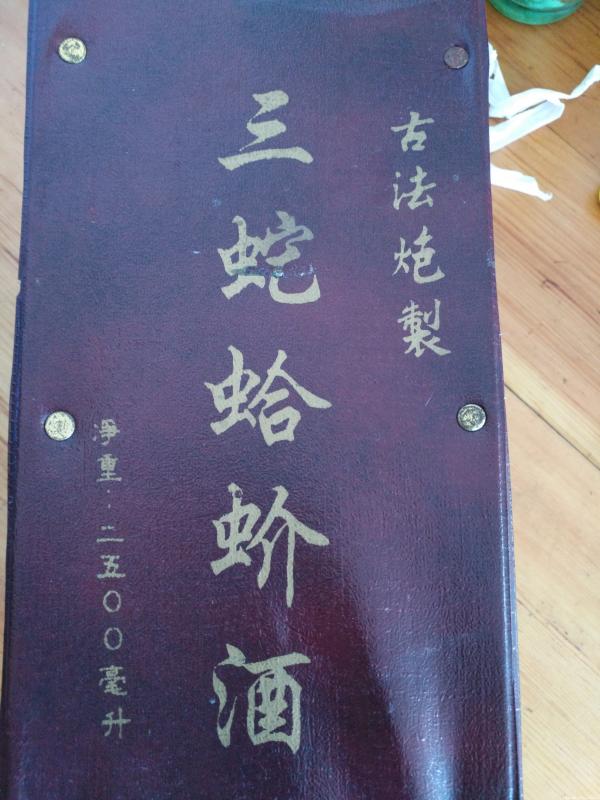 古法炮製
三蛇蛤蚧酒
淨重：二五〇〇毫升